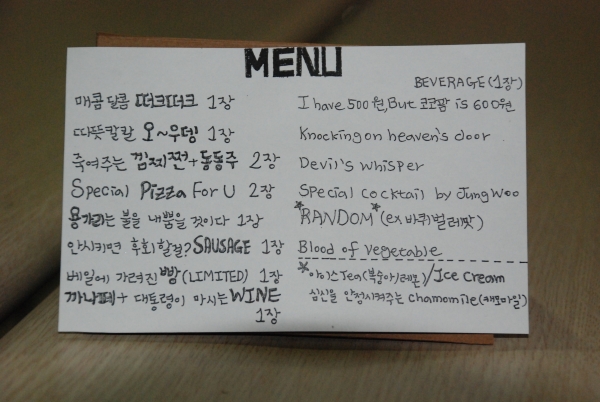 MENU
매콤달콤 떠크떠크 1장
따뜻칼칼 오~우뎅 1장
죽여주는 김찌쩐+동동주 2장
Special Pizza For U 2장
용가리는 불을 내뿜을 것이다 1장
안시키면 후회할걸? SAUSAGE 1장
베일에 가려진 빵(LIMITED) 1장
까나페+ 대통령이 마시는 WINE
1장
BEVERAGE(1장)
I have 500원, But 코코팜 is 600원
Knocking on heaven's door
Devil's whisper
Special cocktail by Jung Woo
*RANDOM* (ex 바퀴벌레팟)
Blood of Vegetable
*아이스Tea(복숭아/레몬)/Ice Cream
심신을 안정시켜주는 chamomile(캐모마일)